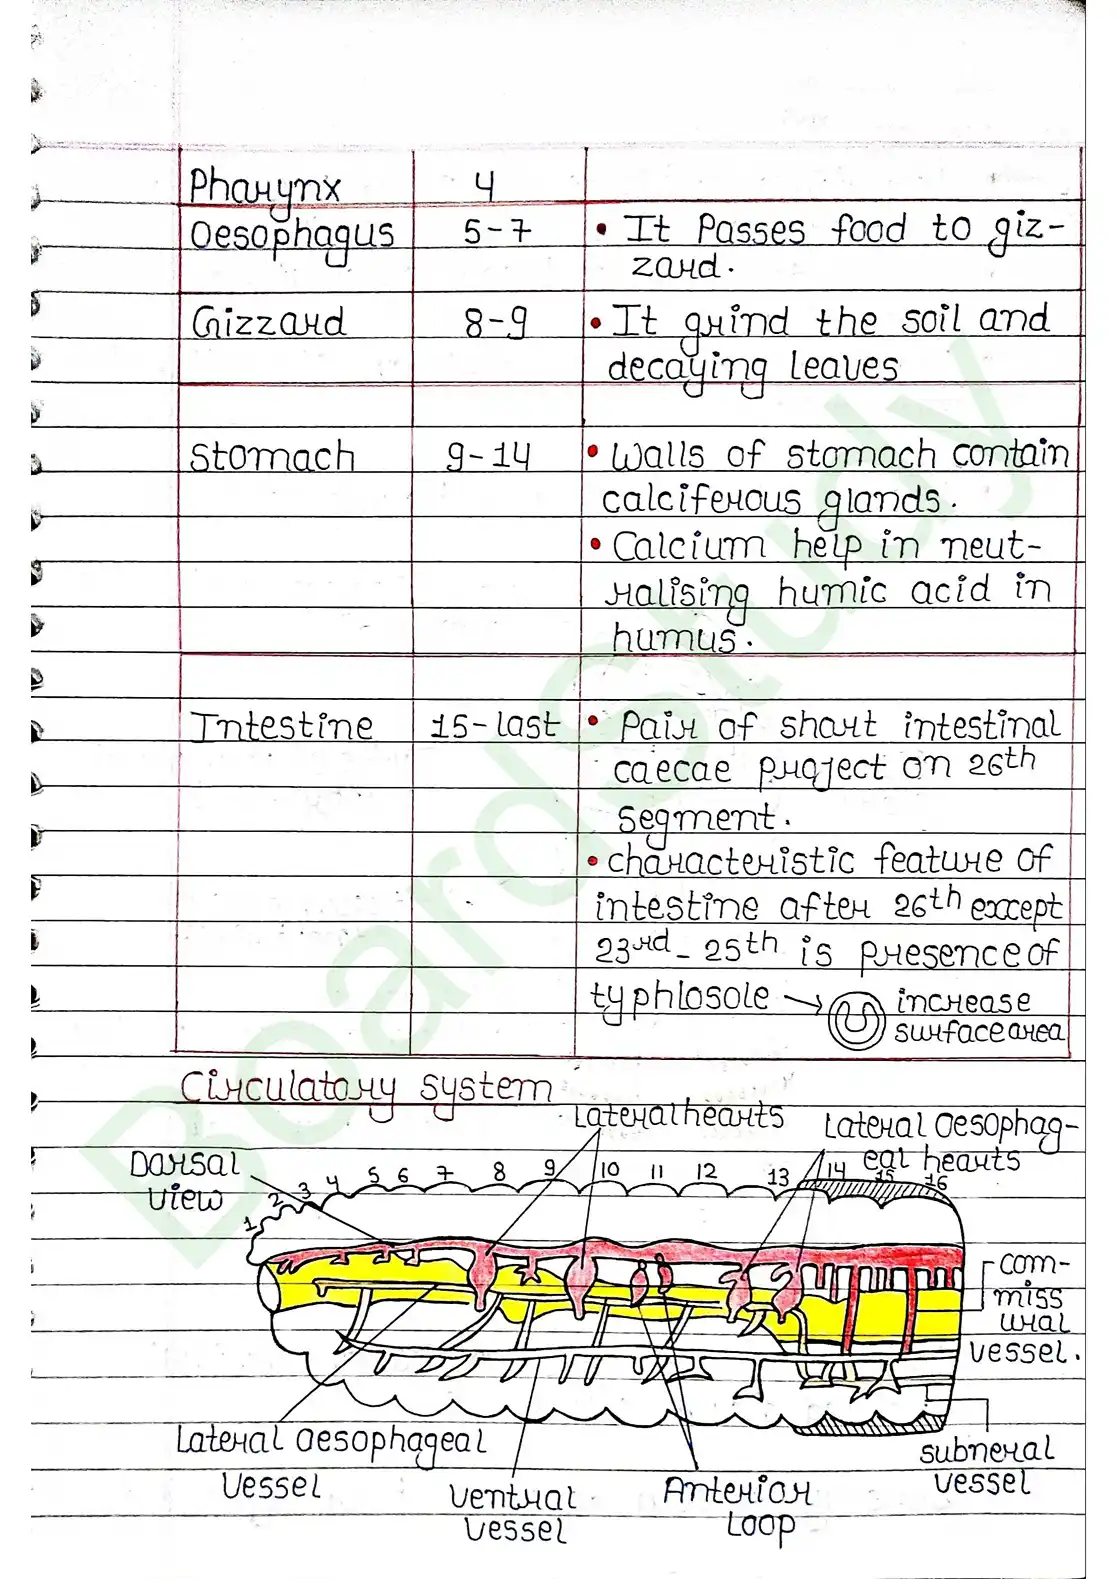 Pharynx 4
Oesophagus 5-7 • It Passes food to giz-
zard.
Gizzard 8-9 • It grind the soil and
decaying leaves
Stomach 9-14 • Walls of stomach contain
calciferous glands.
• Calcium help in neut-
ralising humic acid in
humus.
Intestine 15-last • Pair of short intestinal
caecae project on 26th
segment.
• characteristic feature of
intestine after 26th except
23rd-25th is presence of
typhlosole → increase
surface area
Circulatory system
Lateral hearts
Lateral oesophag-
eal hearts
Dorsal
view
1 2 3 4 5 6 7 8 9 10 11 12 13 14 15 16
com-
miss
ural
vessel.
Lateral oesophageal
vessel
ventral
vessel
Anterior
Loop
subneral
vessel
BoardStudy